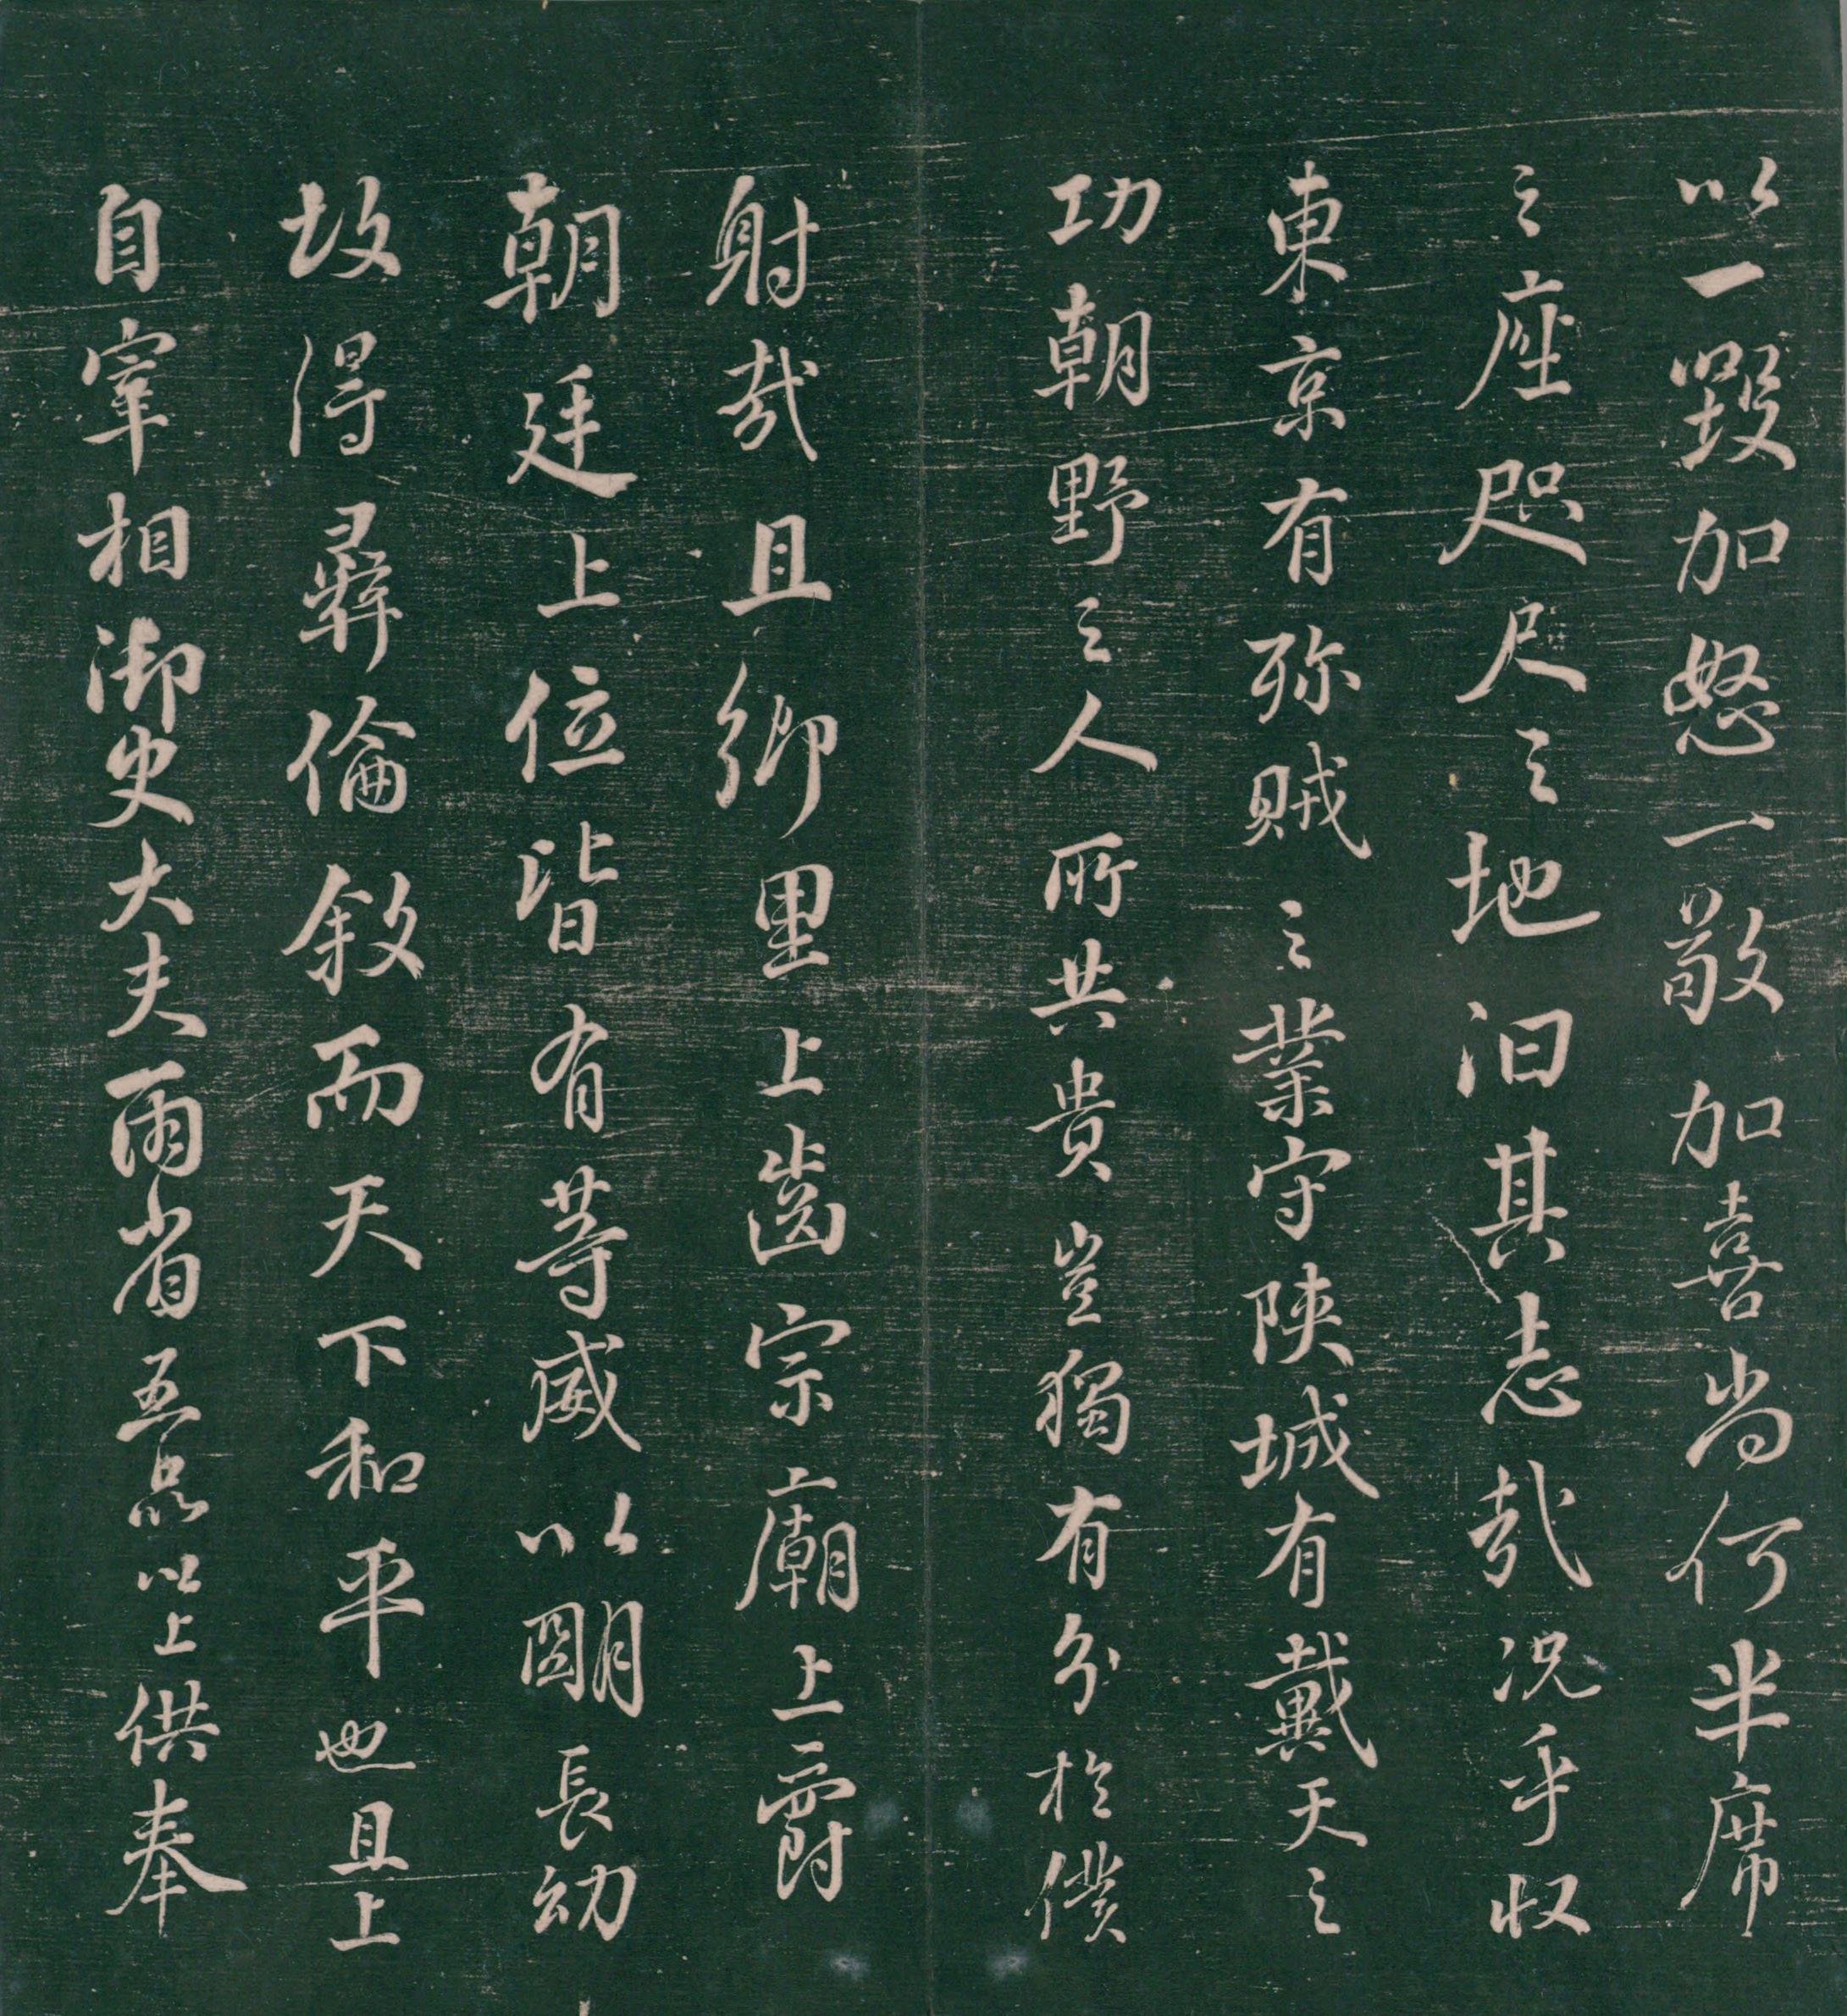 以一毀加怒一敬加喜尚何半席
之座咫尺之地汩其志哉況乎収
東京有弥賊之業守陝城有戴天之
功朝野之人所共貴豈獨有分於僕
射哉且鄉里上齒宗廟上爵
朝廷上位皆有等威以明長幼
故得彞倫敘而天下和平也且上
自宰相御史大夫兩省五品以上供奉